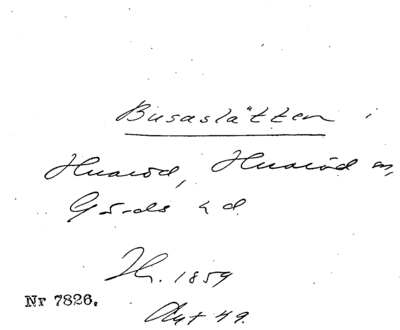 Busaslätten i
Huaröd, Huaröd sn,
Gärds hd.
Th. 1859
Nr 7826.
Akt 49.